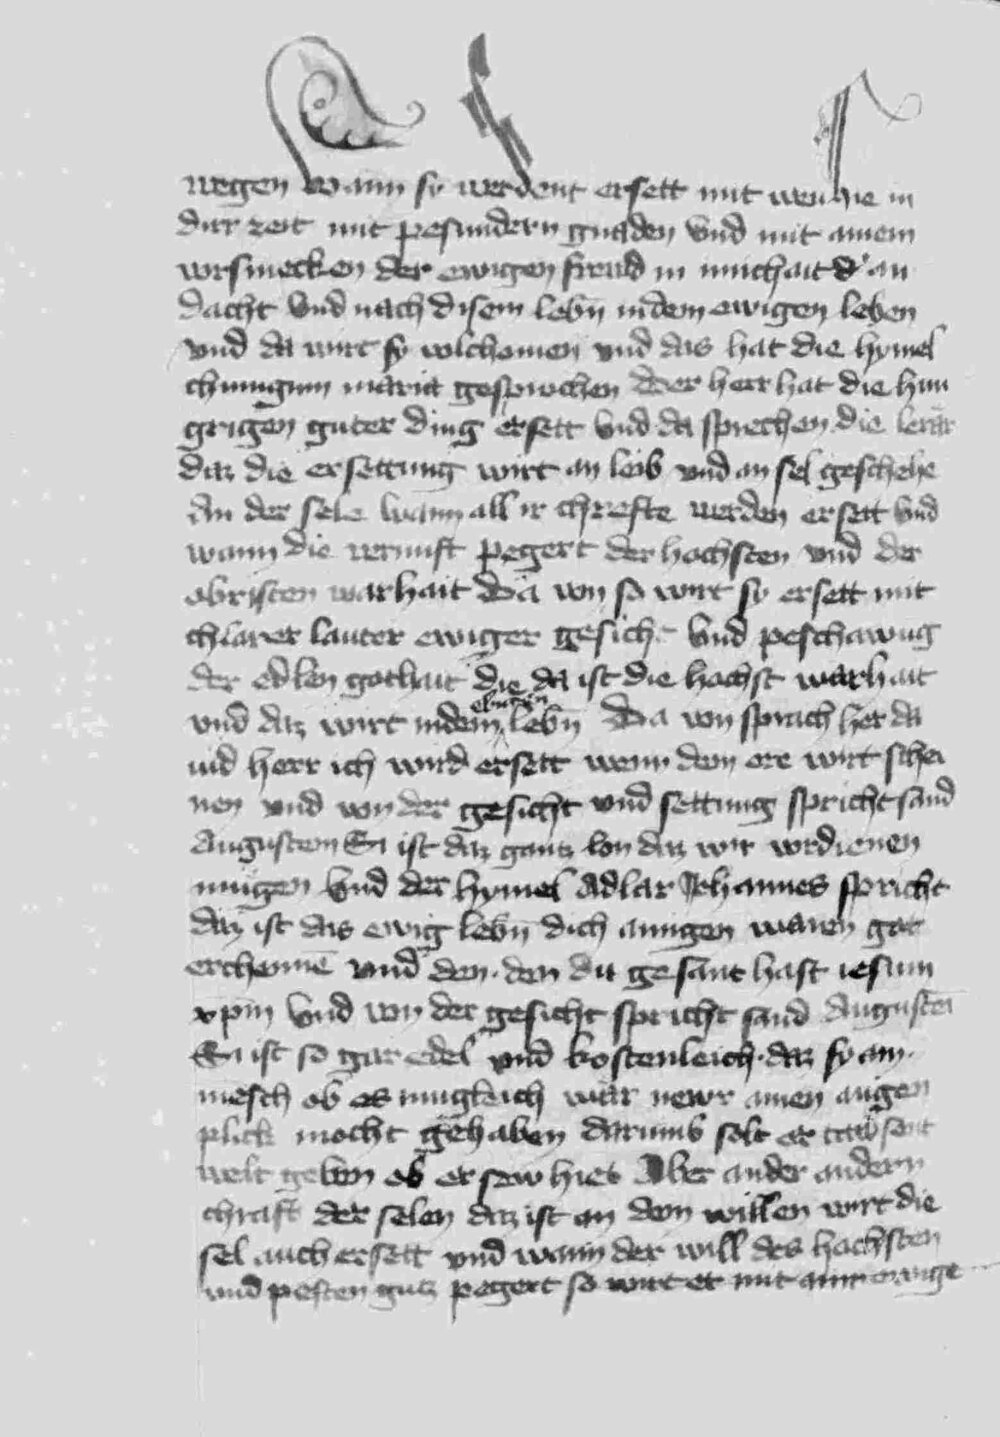 wegen wann sy werdent ersett mit wen hie in
dirr zeit mit pesundern gnaden vnd mit ainem
vorsmecken der ewigen freud in innichait d' an
dacht vnd nach disem lebn̄ in dem ewigen leben
vnd da wirt sy volchomen vnd das hat die hymel
chunigynn maria gesprochen Der herr hat die hun
grigen guter ding ersett vnd da sprechen die lerär
daz die ersettung wirt an leib vnd an sel geschehe
An der sele wann all ir chrefte werden ersett vnd
wann die vernuft pegert der hochsten vnd der
obristen warhait Da von so wirt sy ersett mit
chlarer lauter ewiger gesicht vnd peschawng
der edlen gothait die da ist die hochst warhait
vnd daz wirt in dem ebigen lebn̄ Da von sprach her da
uid herr ich wird ersett wenn dein ere wirt schei
nen vnd von der gesicht vnd settung spricht sand
Augustein Si ist daz gantz lon daz wir verdienen
mugen vnd der hymel Adlar Johannes spricht
daz ist das ewig lebn̄ dich ainigen waren got
erchennē vnd den den du gesant hast iesum
xpm̄ vnd von der gesicht spricht sand Augustei
Si ist so gar edel vnd kostenleich daz sy ain
mēsch ob es mugleich wär newr ainen augen
plick mocht gehaben darumb solt er sent
welt geben ob er sew hiet Aber an der andern
chraft der selen daz ist an dem willen wirt die
sel auch ersett vnd wann der will des hochsten
vnd pesten gutz pegert so wirt er mit ainer ewige